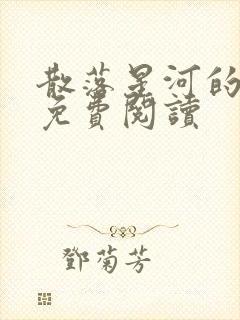 散落星河的
免費閱讀
鄧菊芳